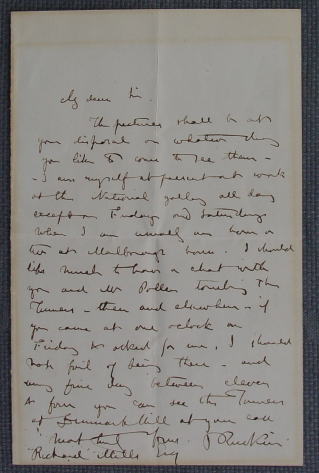 My dear Sir.
The pictures shall be at
your disposal on whatever day
you like to come to see them -
- I am myself at present at work
at the National gallery all day
except on Fridays and Saturdays
when I am usually an hour or
two at Marlborough house. I should
like much to have a chat with
you and Mr Pollen touching the
Turners - there and elsewhere - if
you came at one oclock on
Friday & asked for me, I should
not fail of being there - and
any fine day between eleven
& four you can see the Turners
at Denmark Hill at your call
most truly Yours. J Ruskin
Richard Mills Esq